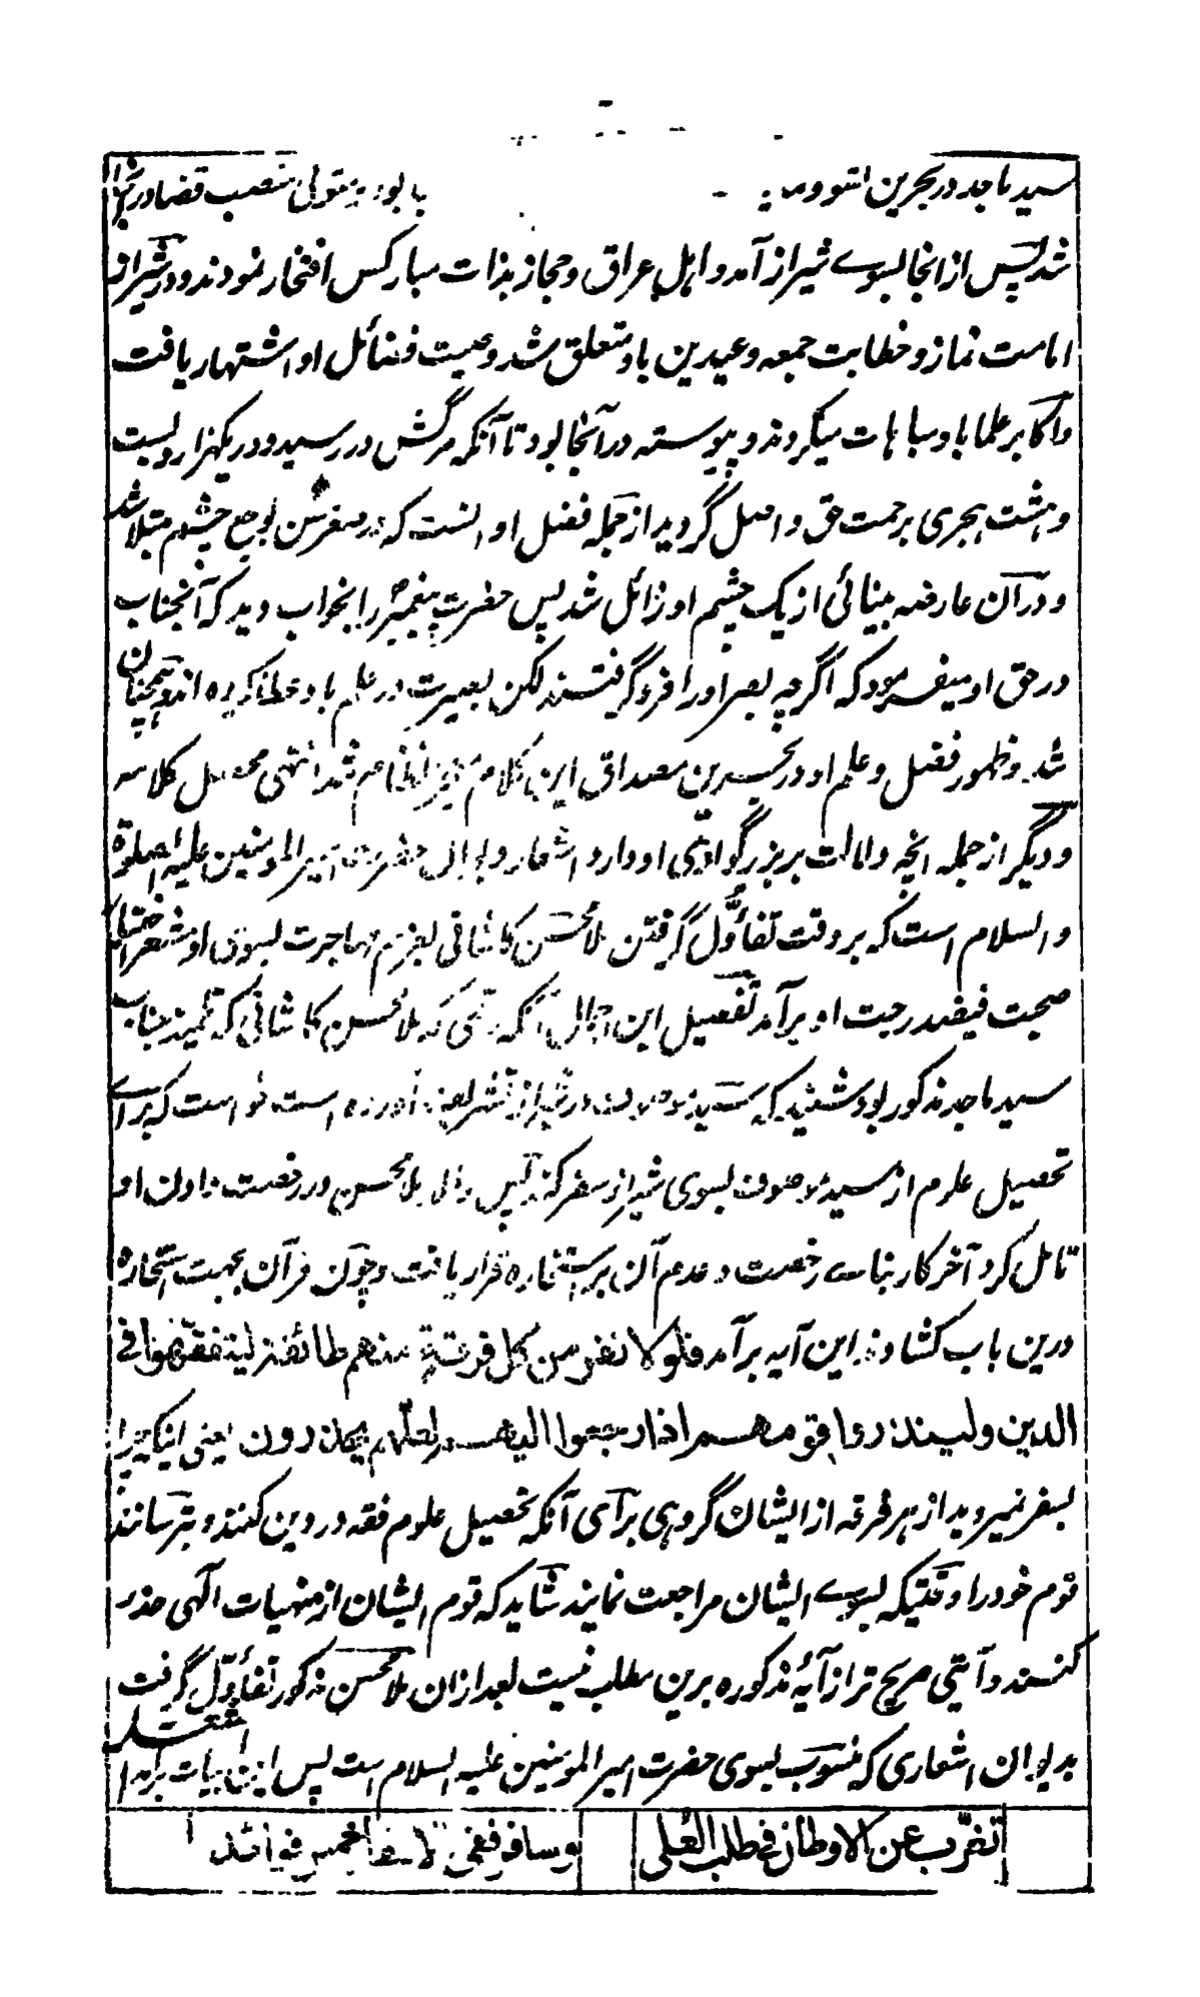 سید ماجد در بحرین نشو و نما یافته بود پس متولی منصب قضا در آنجا
شد پس از آنجا بسوے شیراز آمد و اہل عراق و حجاز بذات مبارکش افتخار نمودند و در شیراز
امامت نماز و خطابت جمعہ و عیدین باو متعلق شد و صیت فضائل او اشتہار یافت
و اکابر علما باو مباہات میکردند و پیوستہ در آنجا بود تا آنکہ مرگش در رسید و در یکہزار و بست
و ہشت ہجری برحمت حق واصل گردید از جملہ فضل او آنست کہ در صغر سن بوجع چشم مبتلا شد
و در آن عارضہ بینائی از یک چشم او زائل شد پس حضرت پیغمبرؐ را بخواب دید کہ آنجناب
در حق او میفرمود کہ اگرچہ بصر او را فرو گرفتند لکن بصیرت در علم باو عطا کردہ اند و ہمچنان
شد و ظہور فضل و علم او در بحرین مصداق این کلام شد انتہی محصل کلامہ
و دیگر از جملہ آنچہ دلالت بر بزرگواری او دارد اشعار دیوان حضرت امیر المومنین علیہ الصلوۃ
و السلام است کہ بر وقت تفأول گرفتن ملا محسن کاشانی بعزم مہاجرت بسوی او مشعر اختیار
صحبت فیضدرجت او برآمد تفصیل این اجمال آنکہ وقتی کہ ملا محسن کاشانی کہ تلمیذ جناب
سید ماجد مذکور بود شنید کہ سید موصوف در شیراز تشریف آوردہ است خواست کہ براے
تحصیل علوم از سید موصوف بسوی شیراز سفر کند پس والد ملا محسن در رخصت دادن او
تامل کرد آخر کار بناے رخصت و عدم آن بر استخارہ قرار یافت و چون قرآن بجہت استخارہ
درین باب کشادند این آیہ برآمد فلولا نفر من کل فرقۃ منہم طائفۃ لیتفقہوا فی
الدین ولینذروا قومہم اذا رجعوا الیہم لعلہم یحذرون یعنی اینکہ چرا
بسفر نمیروید از ہر فرقہ از ایشان گروہی برآی آنکہ تحصیل علوم فقہ در دین کنند و بترسانند
قوم خود را وقتیکہ بسوے ایشان مراجعت نمایند شاید کہ قوم ایشان از منہیات الٰہی حذر
کنند و آیتی صریح تر از آیۂ مذکورہ برین مطلب نیست بعد ازان ملا محسن مذکور تفأول گرفت
بدیوان اشعاری کہ منسوب بسوی حضرت امیر المومنین علیہ السلام است پس این ابیات برآمد شعر
تغرّب عن الاوطان فی طلب العُلی    وسافر ففی الاسفار خمس فوائد